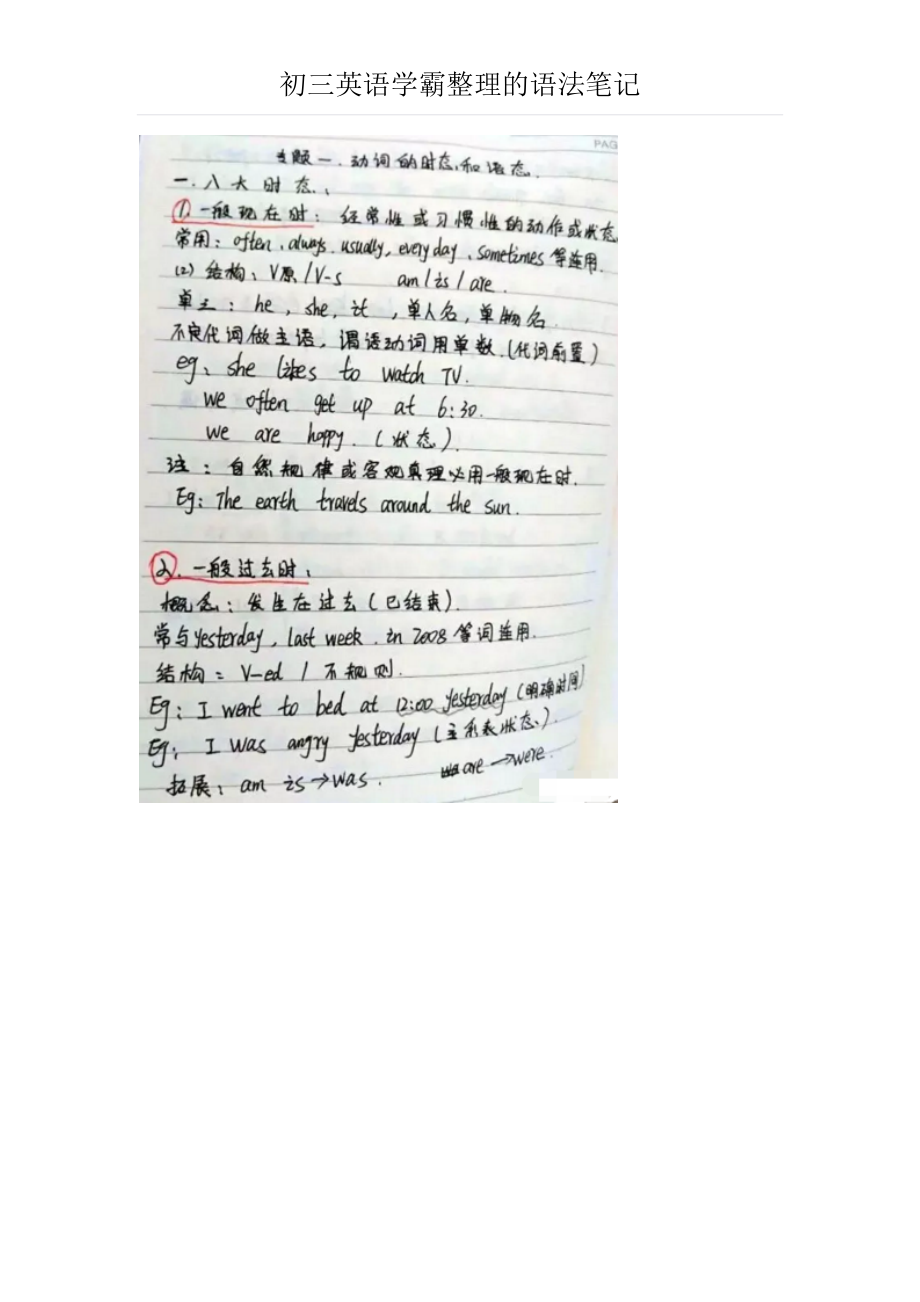 初三英语学霸整理的语法笔记
PAG
专题一.动词的时态和语态.
一.八大时态:
1.一般现在时:经常性或习惯性的动作或状态
常用:often、always.usually,every day、sometimes等连用.
(2)结构:V原/V-s am/is/are.
单三:he,she,it,单人名,单物名.
不定代词做主语,谓语动词用单数.(代词前置)
eg、she likes to watch TV.
we often get up at 6:30.
we are happy.(状态).
注:自然规律或客观真理必用一般现在时.
Eg:The earth travels around the sun.
2.一般过去时:
概念:发生在过去(已结束).
常与yesterday,last week.in 2008等词连用.
结构:V-ed/不规则.
Eg:I went to bed at 12:00 yesterday(明确时间)
Eg:I was angry yesterday(主系表状态).
拓展:am is→was. are→were.